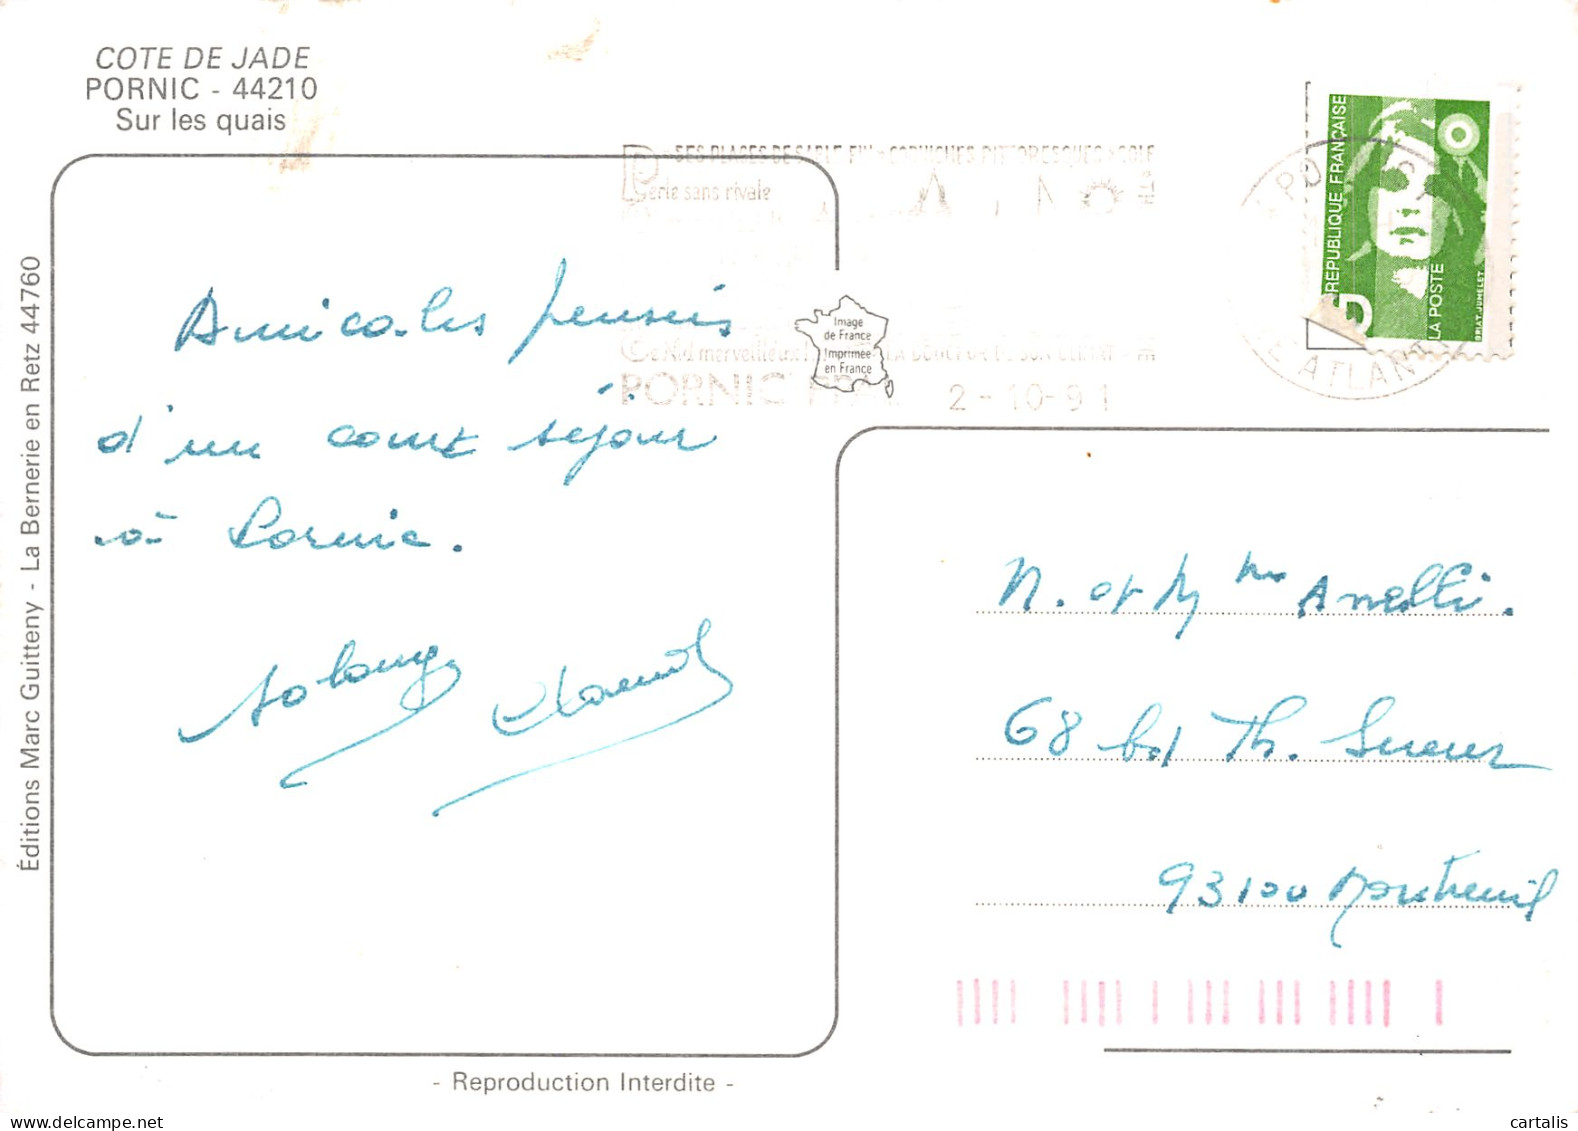 COTE DE JADE
PORNIC - 44210
Sur les quais
Éditions Marc Guitteny - La Bernerie en Retz 44760
SES PLAGES DE SABLE FIN - CORNICHES PITTORESQUES - GOLF
Perle sans rivale
Ce Nid merveilleux LA DOUCEUR DE SON CLIMAT
PORNIC
2-10-91
ATLAN
REPUBLIQUE FRANÇAISE
LA POSTE
BRIAT.JUMELET
D
Image
de France
Imprimée
en France
Amicales pensées
d'un court séjour
à Pornic.
Solange
M. et Mme Anelli.
68 bd Th. Sueur
93100 Montreuil
- Reproduction Interdite -
cartalis